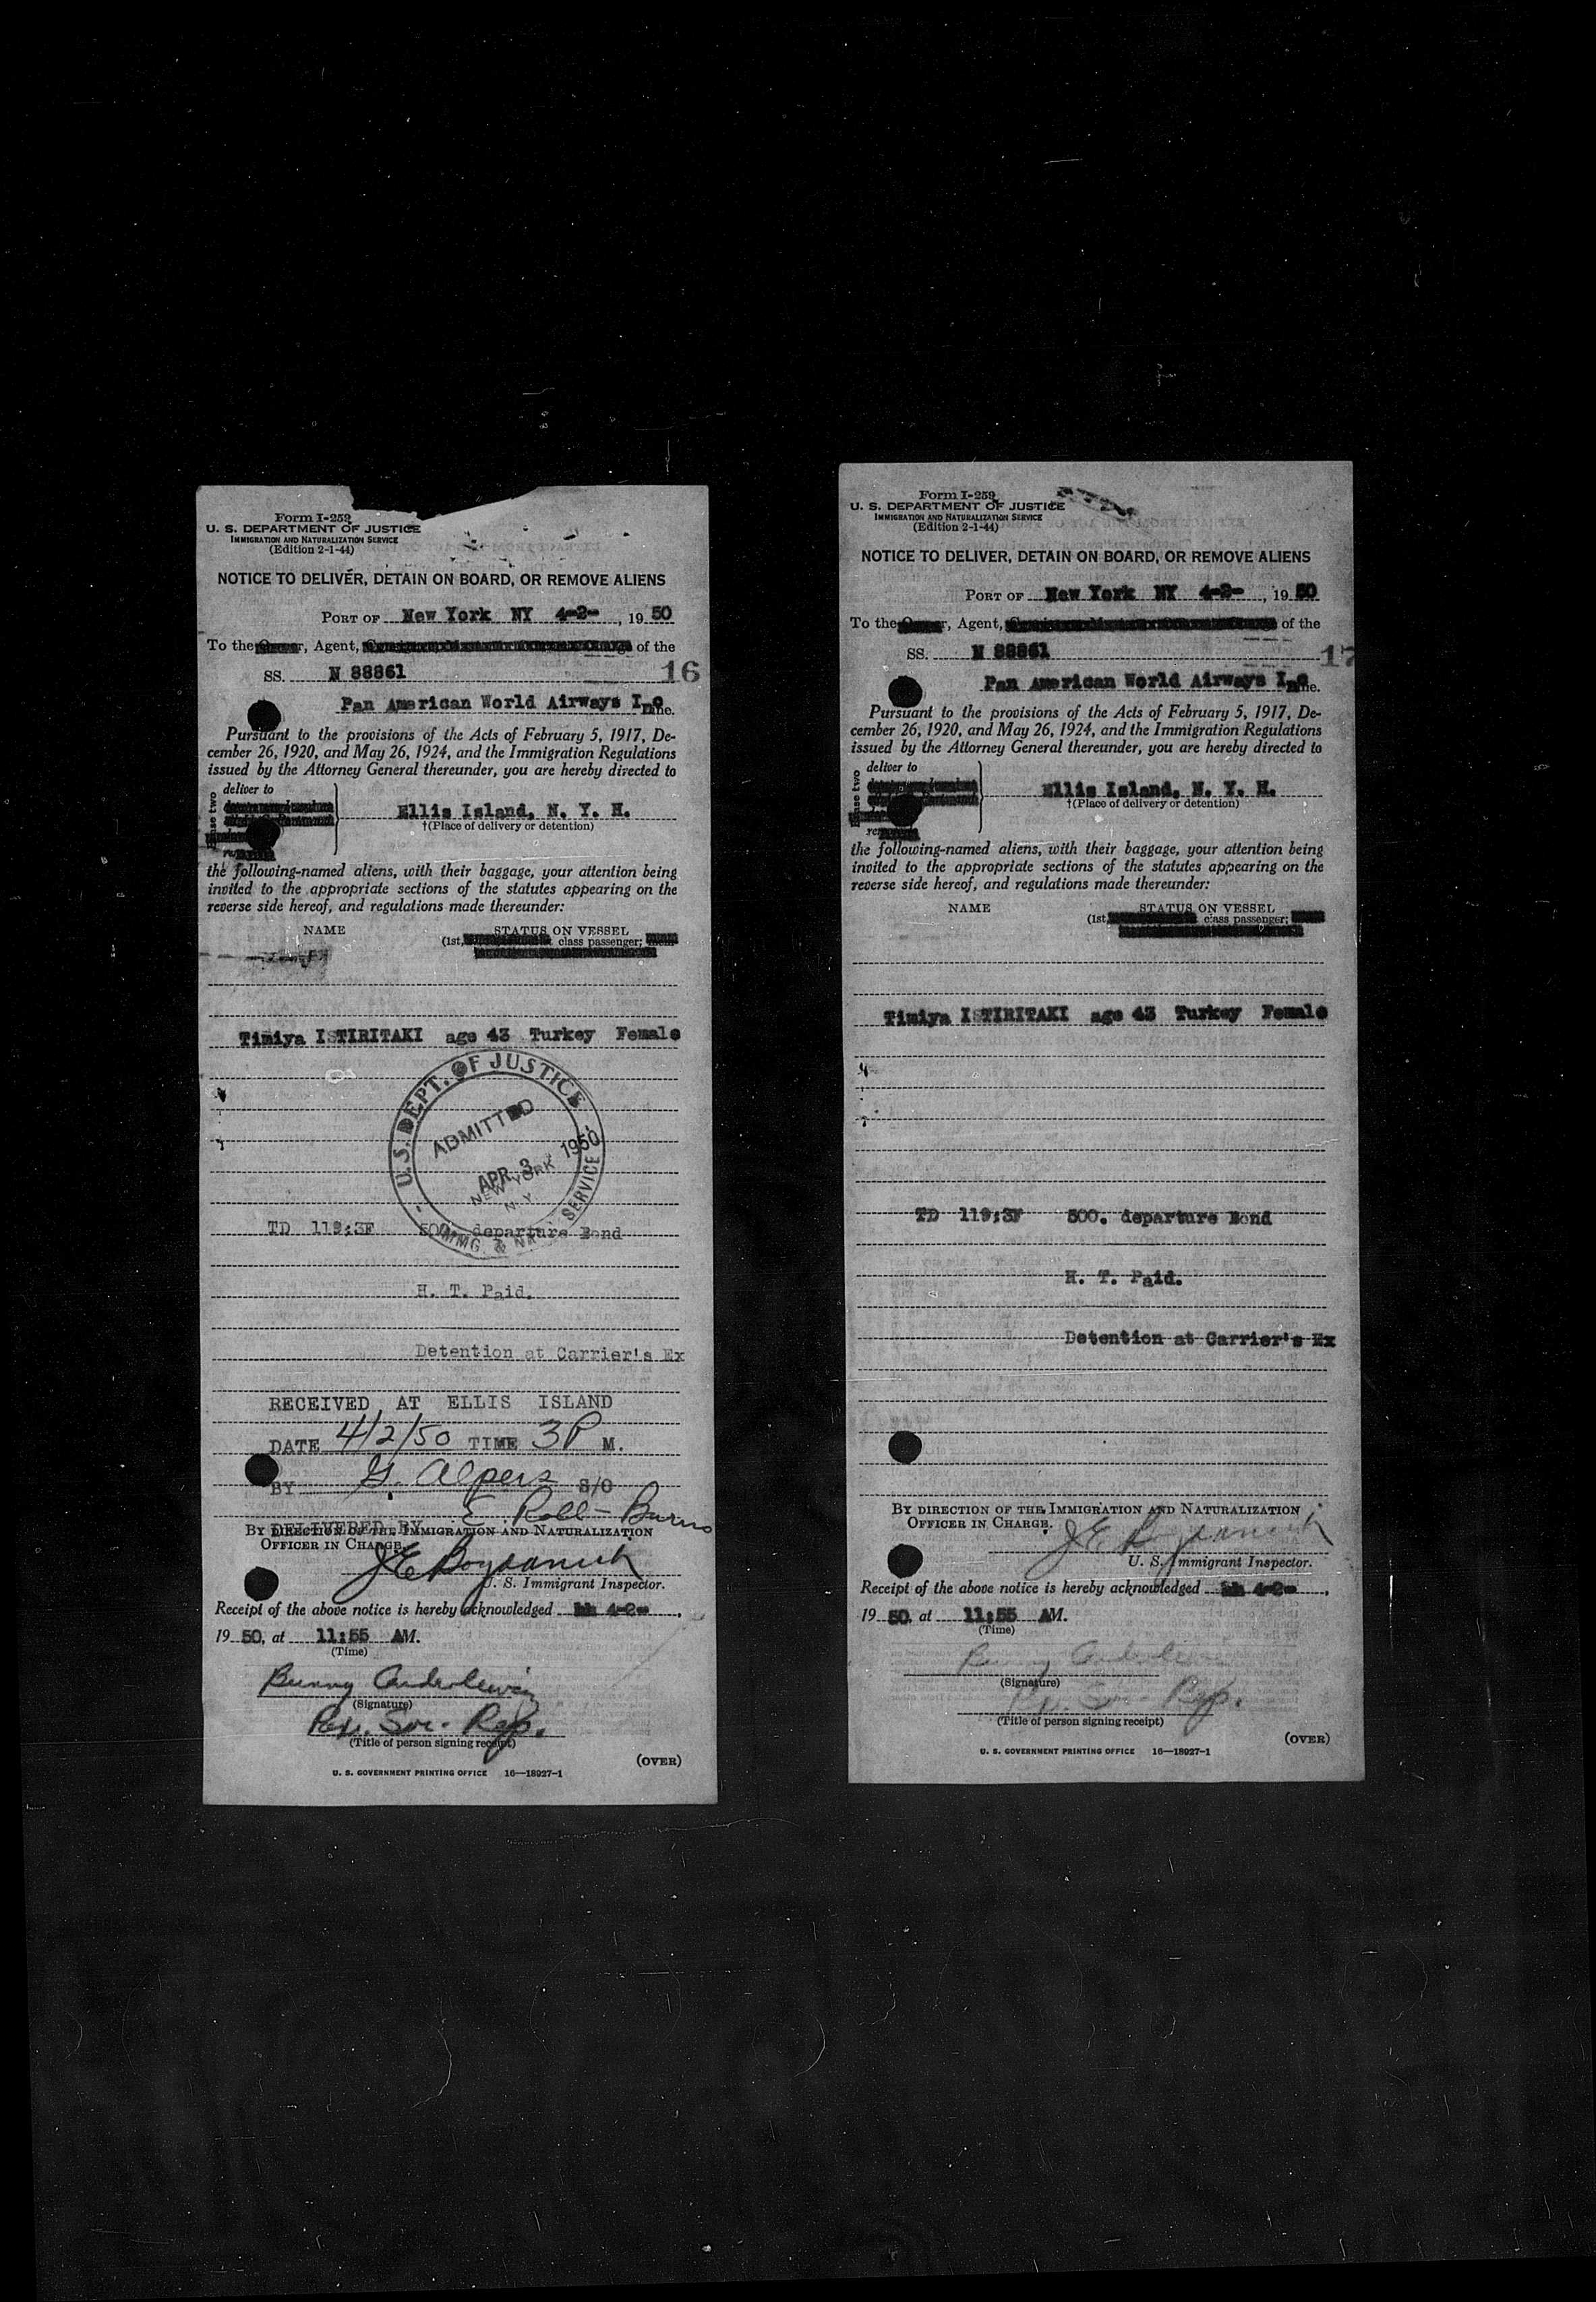 Form I-259
U. S. DEPARTMENT OF JUSTICE
IMMIGRATION AND NATURALIZATION SERVICE
(Edition 2-1-44)
NOTICE TO DELIVER, DETAIN ON BOARD, OR REMOVE ALIENS
PORT OF New York NY 4-2- , 19 50
To the , Agent, of the
SS. N 88861
16
Pan American World Airways Inc
Pursuant to the provisions of the Acts of February 5, 1917, De-
cember 26, 1920, and May 26, 1924, and the Immigration Regulations
issued by the Attorney General thereunder, you are hereby directed to
deliver to
Ellis Island, N. Y. H.
†(Place of delivery or detention)
the following-named aliens, with their baggage, your attention being
invited to the appropriate sections of the statutes appearing on the
reverse side hereof, and regulations made thereunder:
NAME STATUS ON VESSEL
(1st, class passenger;
Timiya ISTIRITAKI age 43 Turkey Female
U.S. DEPT. OF JUSTICE
ADMITTED
APR. 3 1950
NEW YORK
N. Y.
IMMG. & NAT. SERVICE
TD 119:3F 500. departure Bond
H. T. Paid.
Detention at Carrier's Ex
RECEIVED AT ELLIS ISLAND
DATE 4/2/50 TIME 3P M.
BY G. Alpers S/O
DELIVERED BY E
BY DIRECTION OF THE IMMIGRATION AND NATURALIZATION
OFFICER IN CHARGE.
U. S. Immigrant Inspector.
Receipt of the above notice is hereby acknowledged 4-2- ,
19 50, at 11:55 AM.
(Time)
Bunny
(Signature)
Rep.
(Title of person signing receipt)
(OVER)
U. S. GOVERNMENT PRINTING OFFICE 16—18927-1
Form I-259
U. S. DEPARTMENT OF JUSTICE
IMMIGRATION AND NATURALIZATION SERVICE
(Edition 2-1-44)
NOTICE TO DELIVER, DETAIN ON BOARD, OR REMOVE ALIENS
PORT OF New York NY 4-2- , 19 50
To the , Agent, of the
SS. N 88861
17
Pan American World Airways Inc
Pursuant to the provisions of the Acts of February 5, 1917, De-
cember 26, 1920, and May 26, 1924, and the Immigration Regulations
issued by the Attorney General thereunder, you are hereby directed to
deliver to
Ellis Island, N. Y. H.
†(Place of delivery or detention)
the following-named aliens, with their baggage, your attention being
invited to the appropriate sections of the statutes appearing on the
reverse side hereof, and regulations made thereunder:
NAME STATUS ON VESSEL
(1st, class passenger;
Timiya ISTIRITAKI age 43 Turkey Female
TD 119:3F 500. departure Bond
H. T. Paid.
Detention at Carrier's Ex
BY DIRECTION OF THE IMMIGRATION AND NATURALIZATION
OFFICER IN CHARGE.
U. S. Immigrant Inspector.
Receipt of the above notice is hereby acknowledged 4-2- ,
19 50, at 11:55 AM.
(Time)
Bunny
(Signature)
Rep.
(Title of person signing receipt)
(OVER)
U. S. GOVERNMENT PRINTING OFFICE 16—18927-1